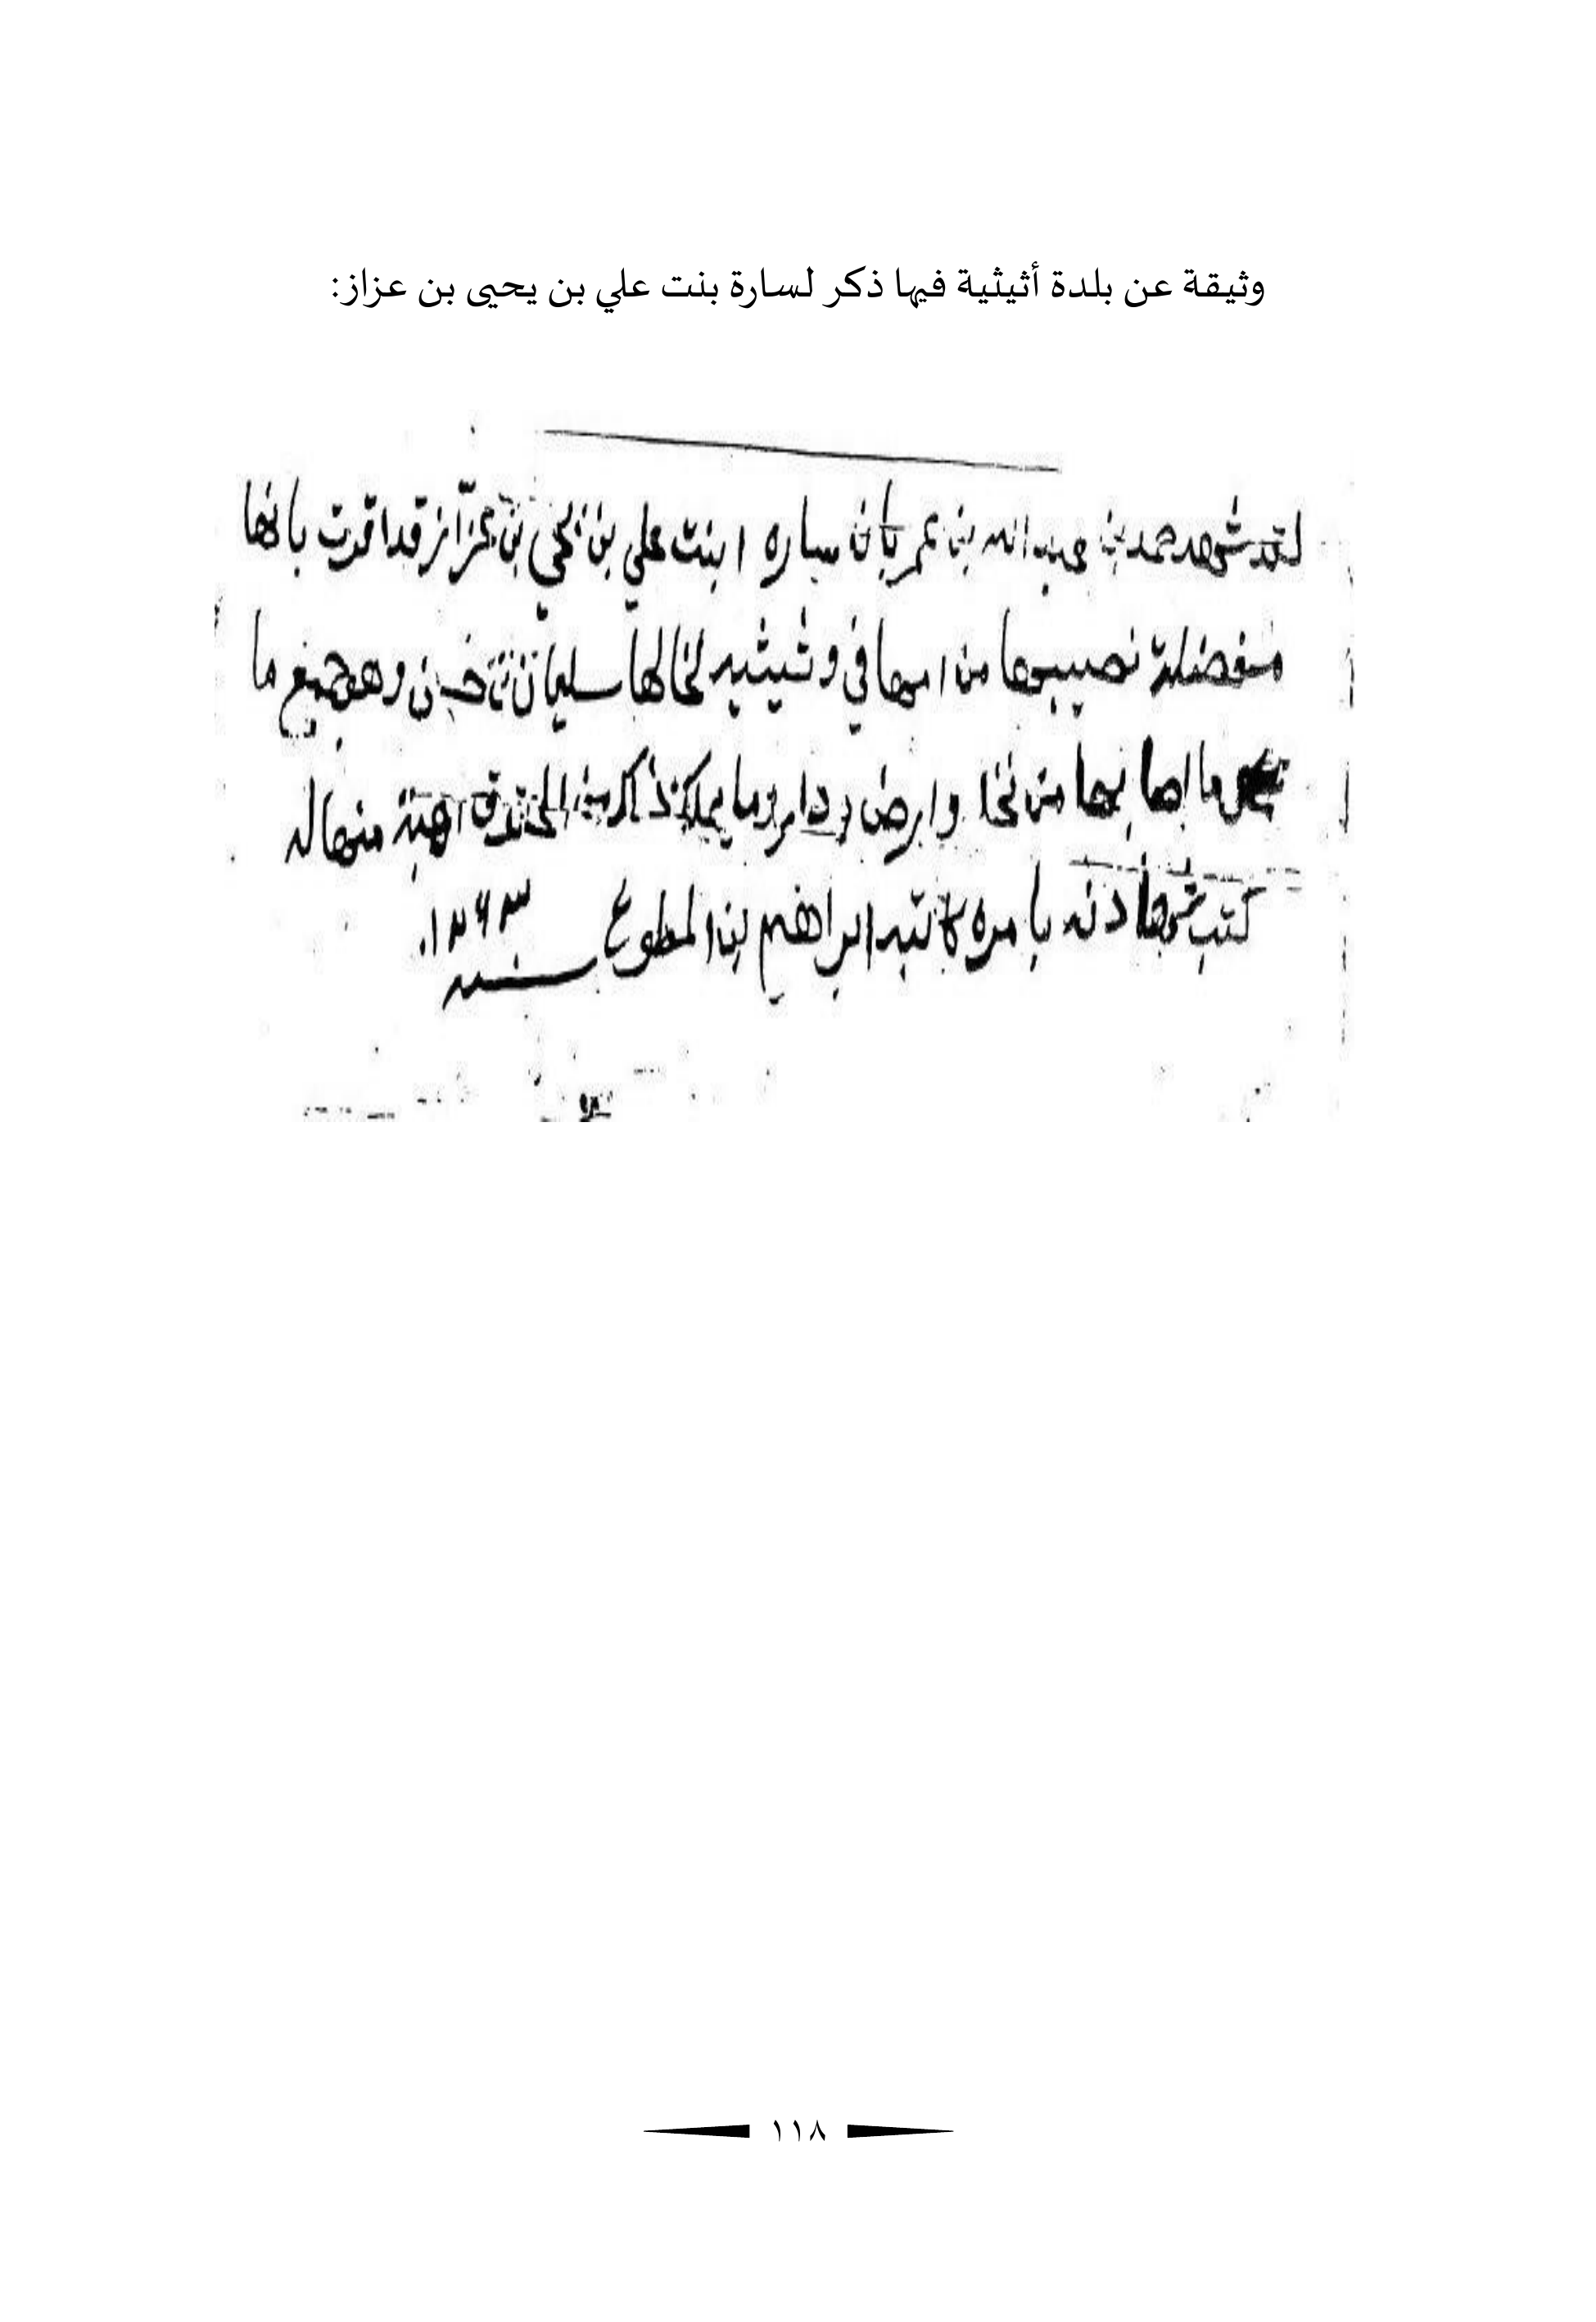 وثيقة عن بلدة أثيثية فيها ذكر لسارة بنت علي بن يحيى بن عزاز:
لقد شهد حمد بن عبدالله بن عمر بأن ساره ابنت علي بن يحي بن عزاز قد اقرت بانها
نصيبها من امها في وثيثيه لخالها سليمان بن وهو جميع ما
ما اصابها من نخل وارض ودار وما يملك ذكر من هبة منها له
كتب شهادته بامره كاتبه ابراهيم بن المطوع سنه ١٢٦٣
١١٨